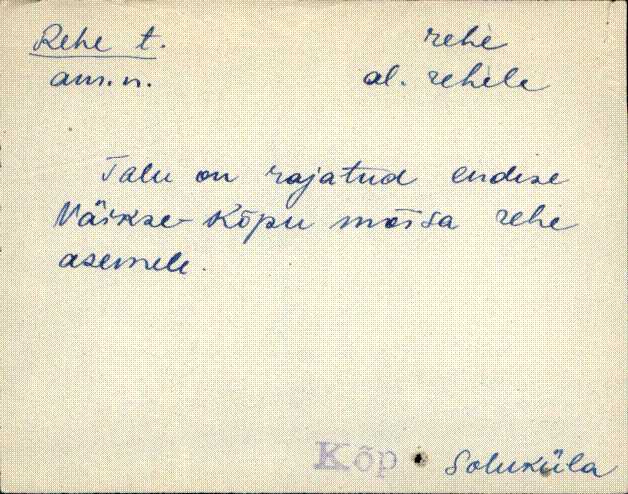 Rehe t. rehe
am.n. al. rehele
Talu on rajatud endise
Väikse-Kõpu mõisa rehe
asemele.
Kõp Soluküla